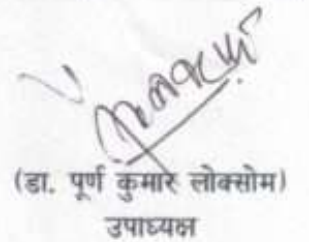 (डा. पूर्ण कुमार लोक्सोम)
उपाध्यक्ष